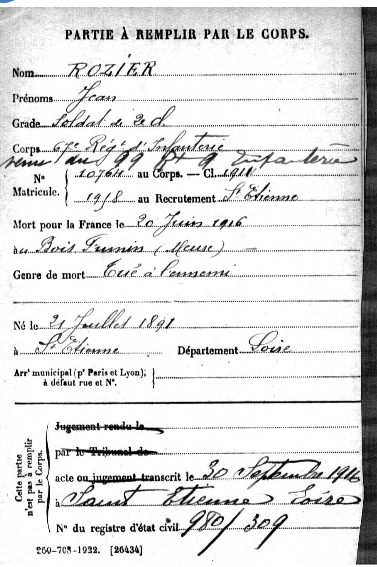 PARTIE À REMPLIR PAR LE CORPS.
Nom ROZIER
Prénoms Jean
Grade Soldat de 2d
Corps 67e Régt d'Infanterie
venu du 99 Rt d Infanterie
N° Matricule. 10764 au Corps. — Cl. 1911
1918 au Recrutement St Etienne
Mort pour la France le 20 Juin 1916
au Bois Fumin (Meuse)
Genre de mort Tué à l'ennemi
Né le 21 Juillet 1891
à St Etienne Département Loire
Arrt municipal (pr Paris et Lyon),
à défaut rue et N°.
Cette partie n'est pas à remplir par le Corps.
Jugement rendu le
par le Tribunal de
acte ou jugement transcrit le 30 Septembre 1916
à Saint Etienne Loire
N° du registre d'état civil 980/309
260-708-1922. [26434]